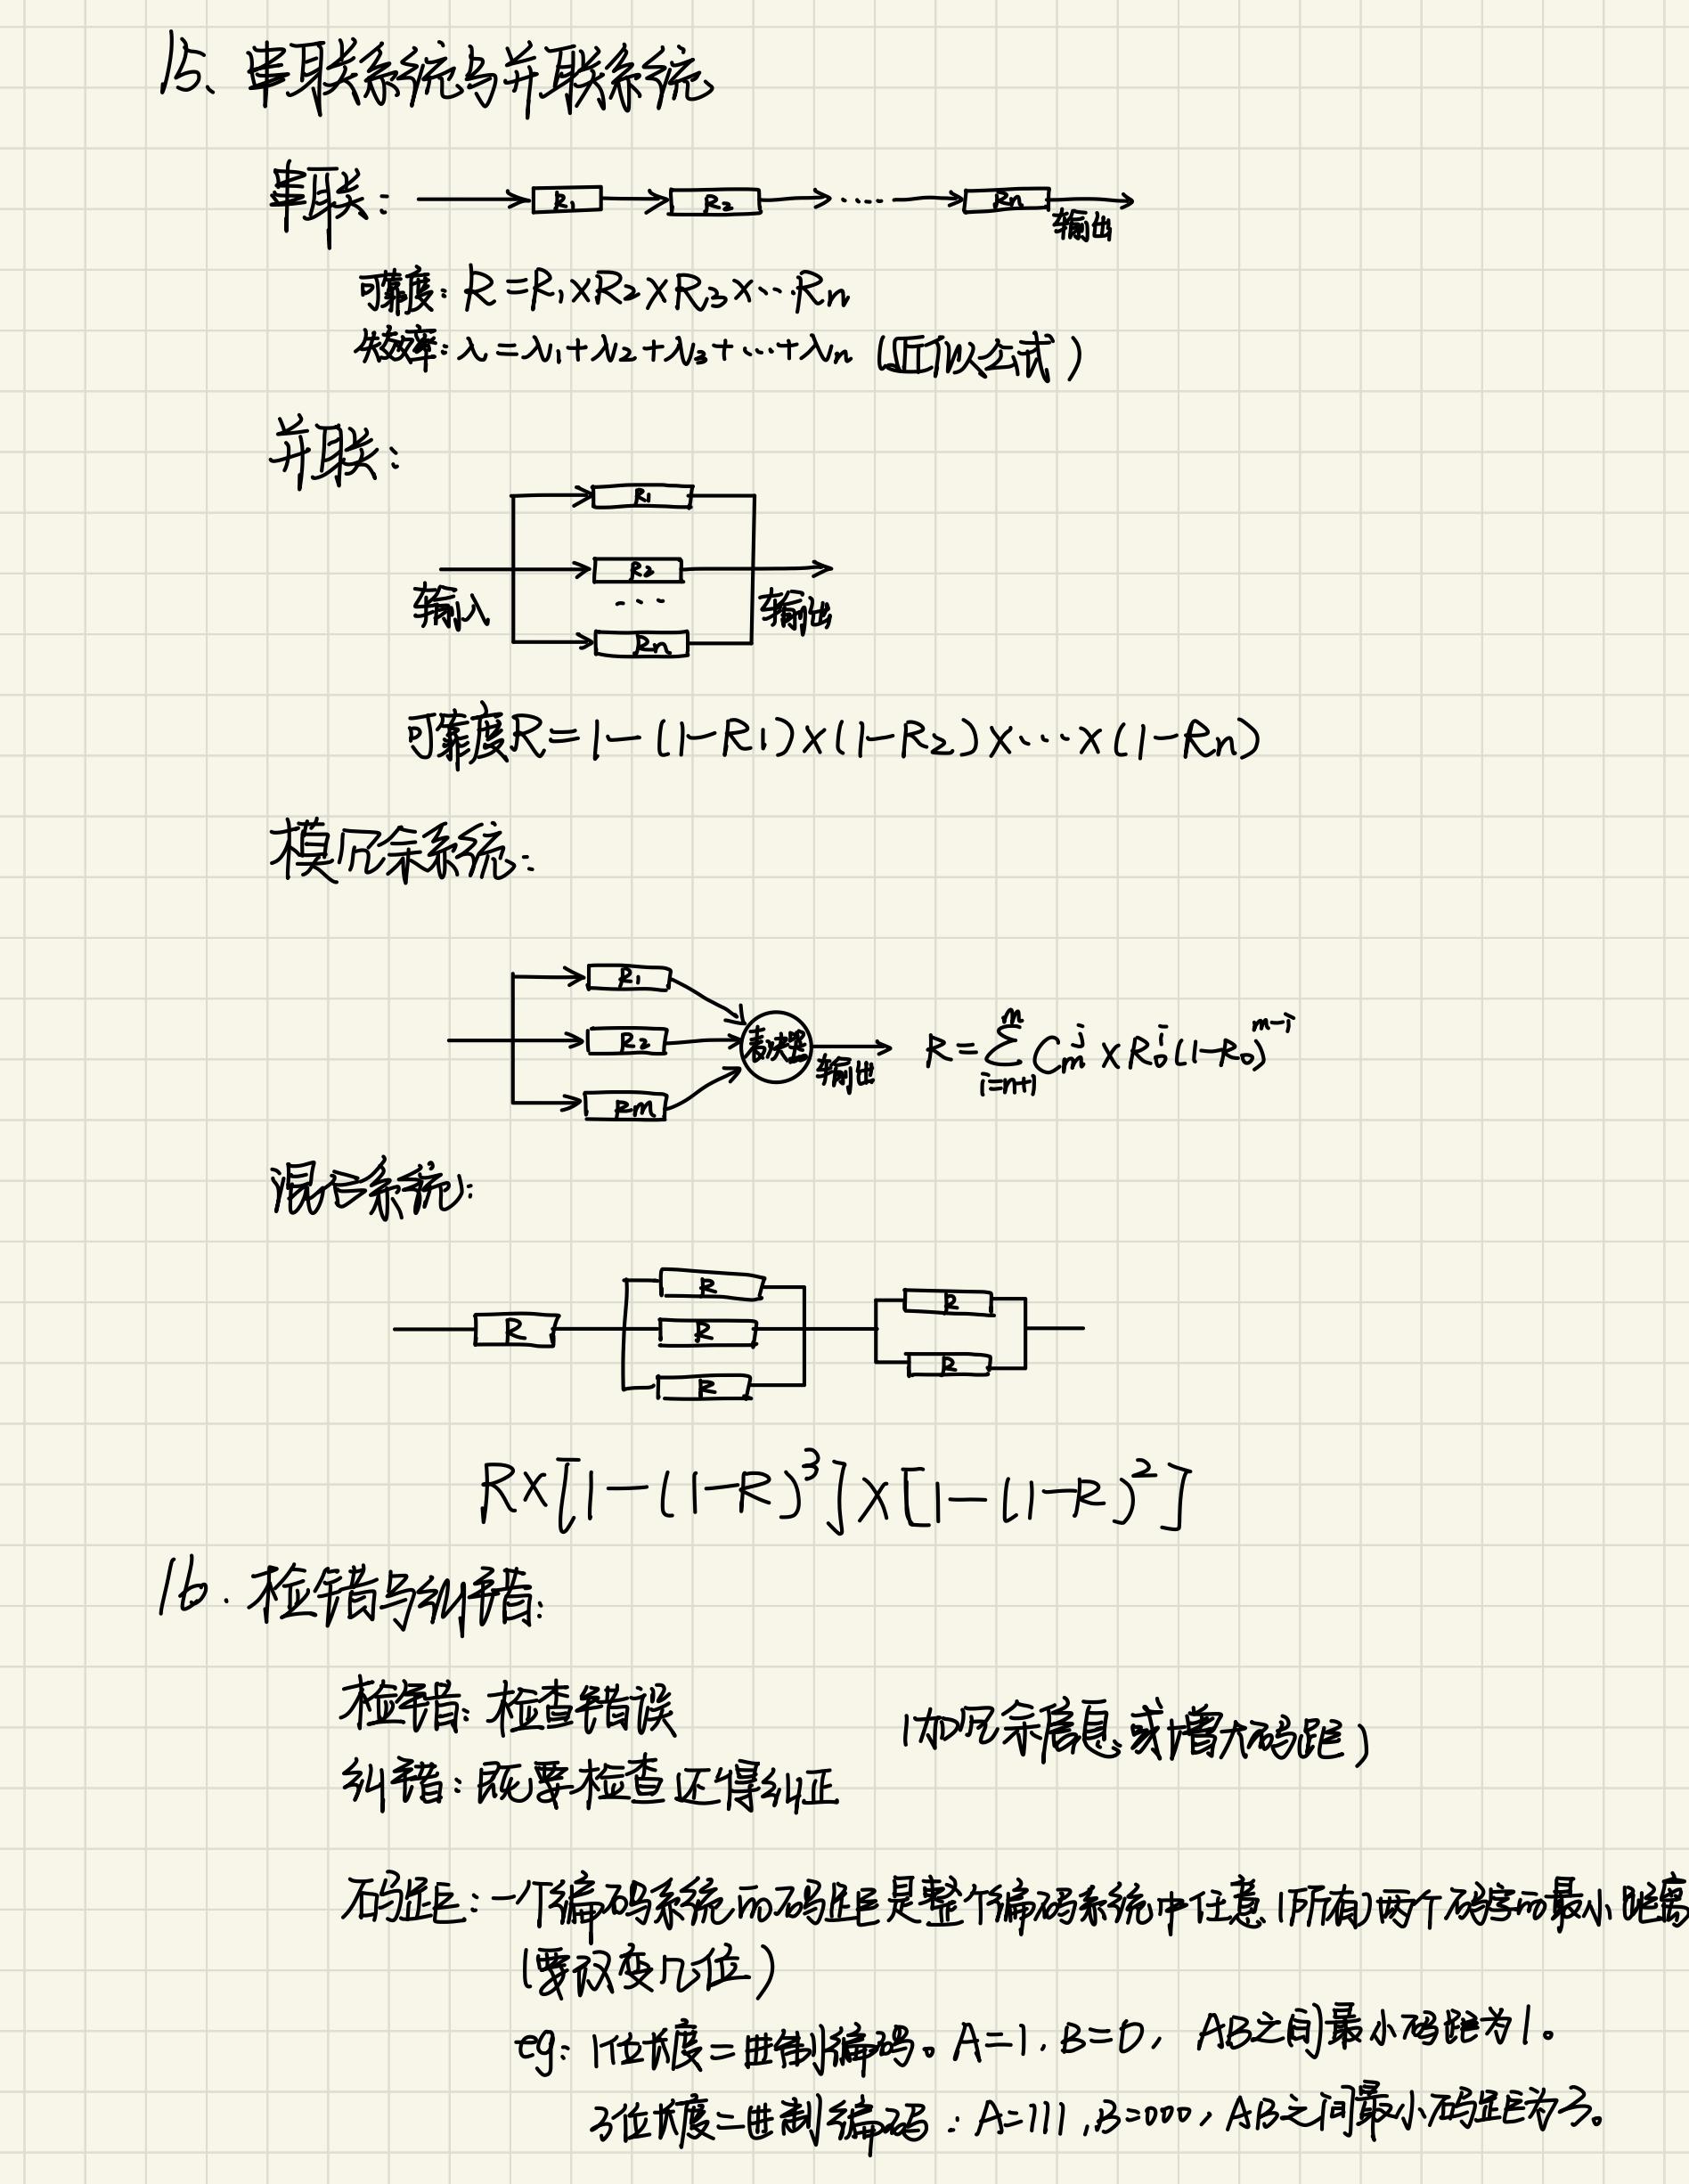 15、串联系统与并联系统
串联：
R₁ R₂ …… Rn
输出
可靠度：R=R₁×R₂×R₃×…Rn
失效率：λ=λ₁+λ₂+λ₃+…+λn（近似公式）
并联：
R₁
R₂
输入 … 输出
Rn
可靠度R=1-(1-R₁)×(1-R₂)×…×(1-Rn)
模冗余系统：
R₁
R₂ 表决器 输出
Rm
R=∑_{i=n+1}^{m} C_m^j × R₀^i (1-R₀)^{m-i}
混合系统：
R
R R R
R R
R×[1-(1-R)³]×[1-(1-R)²]
16. 检错与纠错：
检错：检查错误 （加冗余信息或增大码距）
纠错：既要检查还得纠正
码距：一个编码系统的码距是整个编码系统中任意（所有）两个码字的最小距离
（要改变几位）
eg：1位长度二进制编码。A=1，B=0， AB之间最小码距为1。
3位长度二进制编码：A=111，B=000，AB之间最小码距为3。